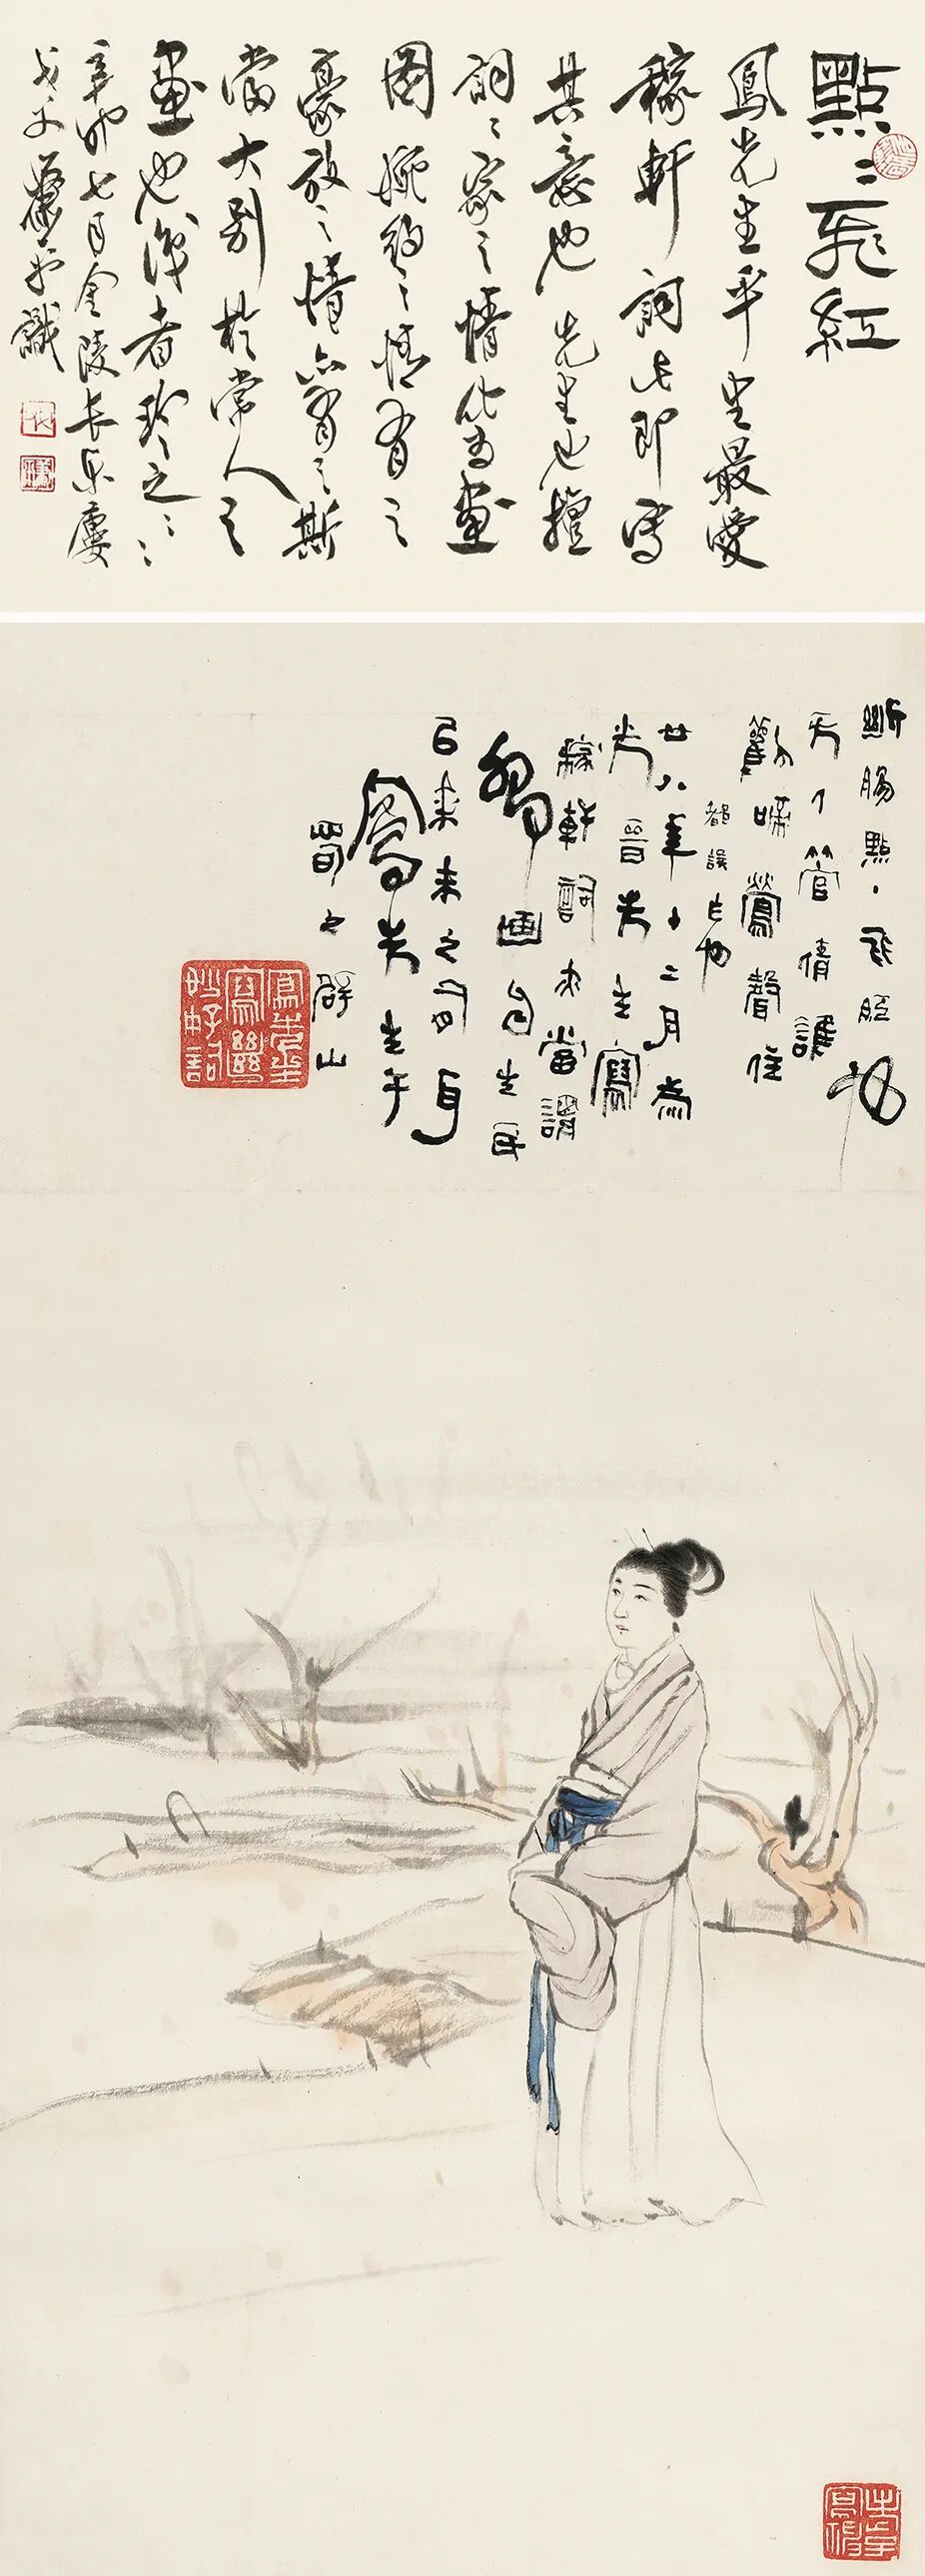 點〻飛紅
鳳先生平生最愛
稼軒詞此即寫
其意也先生也擅
詞〻家之情作為畫
圖婉約之情有之
豪放之情亦有之斯
當大別於常人之
畫也後者珍之〻〻
辛卯七月金陵長樂廔
蕭平識
斷腸點、飛紅
无人管倩誰
勸啼鶯聲住
都誤亡也
廿八年十二月為
光晉先生寫
稼軒詞亦當謂
畫自生民
已來未之有耳
鳳先生于
蜀之璧山